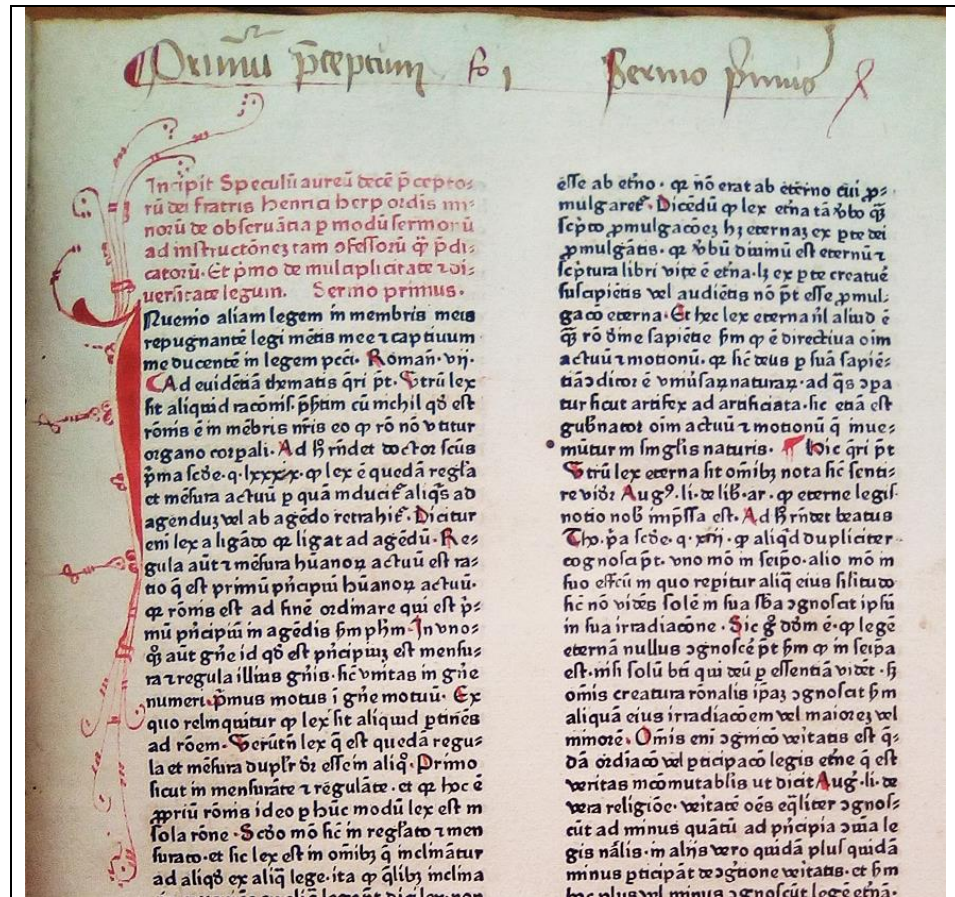 Primus p̄ceptum fo 1 Sermo p̄mus
Incipit Speculū aureū decē p̄cepto⸗
rū dei fratris henrici herp ordīs mi⸗
norū de obseruātia p modū sermonū
ad instructōnez tam ↄfessorū q̄ p̄di⸗
catorū. Et p̄mo de multiplicitate ⁊ di⸗
uersitate legum. Sermo primus.
Nuenio aliam legem in membris meis
repugnantē legi mētis mee ⁊ captiuum
me ducentē in legem pcc̄i. Roman̄. vij.
Ad euidētiā thematis q̄ri pt̄. Utrū lex
sit aliquid racōnis. ph̄tim cū nichil qd̄ est
rōnis ē in mēbris nr̄is eo ꝙ rō nō vtitur
organo corpali. Ad h̄ rn̄det doctor scūs
p̄ma scd̄e. q. lxxxx. ꝙ lex ē quedā regl̄a
et mēsura actuū p quā inducit᷑ aliq̄s ad
agenduz vel ab agēdo retrahit᷑. Dicitur
eni lex a ligādo qz ligat ad agēdū. Re⸗
gula aūt ⁊ mēsura hūanoꝝ actuū est ra⸗
tio q̄ est primū pn̄cipiū hūanoꝝ actuū.
qz rōnis est ad finē ordinare qui est p̄⸗
mū pn̄cipiū in agēdis s̄m ph̄m. In vno⸗
q̄q̄ aūt gn̄e id qd̄ est pn̄cipiuz est mensu⸗
ra ⁊ regula illius gn̄is. sic vnitas in gn̄e
numeri. p̄mus motus ī gn̄e motuū. Ex
quo relinquitur ꝙ lex sit aliquid ptinēs
ad rōem. Uerūtn̄ lex q̄ est quedā regu⸗
la et mēsura dupl̄r dr̄ esse in aliq̊. Primo
sicut in mensurāte ⁊ regulāte. et qz hoc ē
ꝓpriū rōnis ideo p hūc modū lex est in
sola rōne. Scd̄o mō sic in regl̄ato ⁊ men
surato. et sic lex est in om̄ibꝫ q̄ inclināтur
ad aliqd̄ ex aliq̄ lege. ita ꝙ q̄libꝫ inclina
ēsse ab etn̄o. qz nō erat ab eterno cui ꝓ⸗
mulgaret᷑. Dicēdū ꝙ lex etn̄a tā v̄bo q̄
scp̄to ꝓmulgacōez hꝫ eternaz ex pte dei
ꝓmulgātis. qz v̄bū diuinū est eternū ⁊
scp̄tura libri vite ē etn̄a. lꝫ ex pte creatue᷑
suscipiētis vel audiētis nō pt̄ esse ꝓmul⸗
gacō eterna. Et hec lex eterna nl̄ aliud ē
q̄ rō diīne sapiētie s̄m ꝙ ē directiua oīm
actuū ⁊ motionū. qz sic deus p suā sapiē⸗
tiā ↄditor ē vniūsaꝝ naturaꝝ. ad q̄s ↄpa
tur sicut artifex ad artificiata. sic etiā est
gub̄nator oīm actuū ⁊ motionū q̄ inue⸗
niūtur in singl̄is naturis. Hic q̄ri pt̄
Utrū lex eterna sit om̄ibꝫ nota sic senti⸗
re vid̄r Augꝰ. li. de lib̄. ar. ꝙ eterne legis
notio nob̄ imp̄ssa est. Ad h̄ rn̄det beatus
Tho. p̄a scd̄e. q. xciij. ꝙ aliqd̄ dupliciter
cognosci pt̄. vno mō in seip̄o. alio mō in
suo effc̄u in quo repitur aliq̄ eius silitudo
sic nō vidēs solē in sua sb̄a ↄgnoscit ipsū
in sua irradiacōne. Sic g̊ dd̄m ē. ꝙ legē
eternā nullus ↄgnoscē pt̄ s̄m ꝙ in seipa
est. nisi solū bt̄i qui deū p essentiā vidēt. s̄
omīs creatura rōnalis ip̄az ↄgnoscit s̄m
aliquā eius irradiacōem vel maiorez vel
minorē. Omīs eni ↄgnicō veitatis est q̄⸗
dā irdiacō vel pticipacō legis etn̄e q̄ est
veritas incōmutabilis ut dicit Aug. li. de
vera religiōe. veitatē oēs eq̄liter ↄgnos⸗
cūt ad minus quātū ad pn̄cipia ↄm̄ia le
gis nālis. in alijs vero quidā plus quidā
minus pticipāt de ↄgitione veitatis. et s̄m
hoc plus vel minus ↄgnoscūt legē etn̄ā.